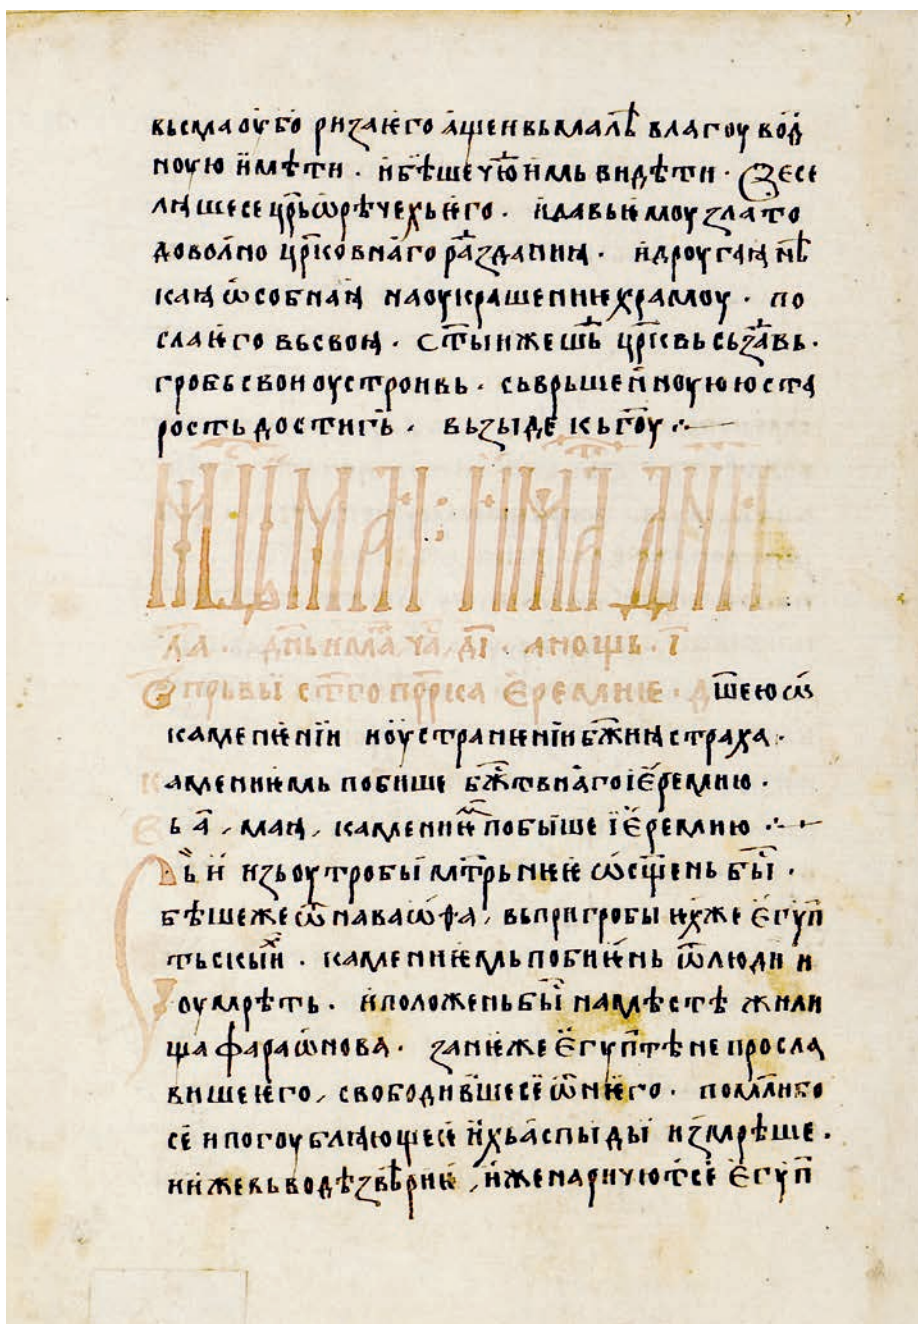 вьсма оуб̀о ризаѥго а҆ще и вьмалѣ влагоу вод̑
ноую и҆мѣти · и҆бѣше чю̑ и҆мь видѣти · Ѕесе
лꙗ҆шесе цр҃ь ѡ҆ рѣчехь ѥ҆го · и҆давь и҆моу злато
доволно цр҃ковнаго ра̑зданиꙗ · и҆дроугаꙗ нѣ
каꙗ ѡ҆собнаꙗ наоукрашениѥ храмоу · по
сла ѥ҆го вьсвоꙗ · ст҃ыи же шь̑ цр҃ковь сьза̑вь ·
гробь свои оустроивь · сьврьшен̑ноую юста
рость достигь · вьзыде кьг҃оу ⁘
мц҃а маꙗ : има дни
л҃а · дн҃ь има ча̑ д҃і · а нощь · і҃
Ѿ прьвыи ст҃го пр҃рка Ѥремиѥ · д
шею ѡ҆
камен̑ѥнїи и оустранѥнїи бж҃иꙗ страха ·
амениѥмь побише бж҃твна̑го їѥ҆ремию ·
ь а҃ маꙗ, камениѥ̑ побыше їѥ҆ремию ⁘
ь и҆ изь оутробы мт҃рьниѥ ѡ҆сщ҃ень бы̑ ·
бѣше же ѿ наваѡ҆ѳа, вьпри гробы и҆хже ѥ҆гуп̑
тьскыи̑ · камениѥ҆мь побиѥ҆нь ѿлюди и
оумрѣть · и҆положень бы̑ на мѣстѣ жили
ща фараѡ҆нова · занѥже ѥ҆гуп̑тѣне просла
вишеѥ҆го, свободив̑шесе ѿнѥ҆го · помл҃нбо
се и погоублꙗющеѥ и҆хь аспыды измрѣше ·
ниже вьводѣ звѣриѥ, иже наричют̑се ѥ҆гуп̑